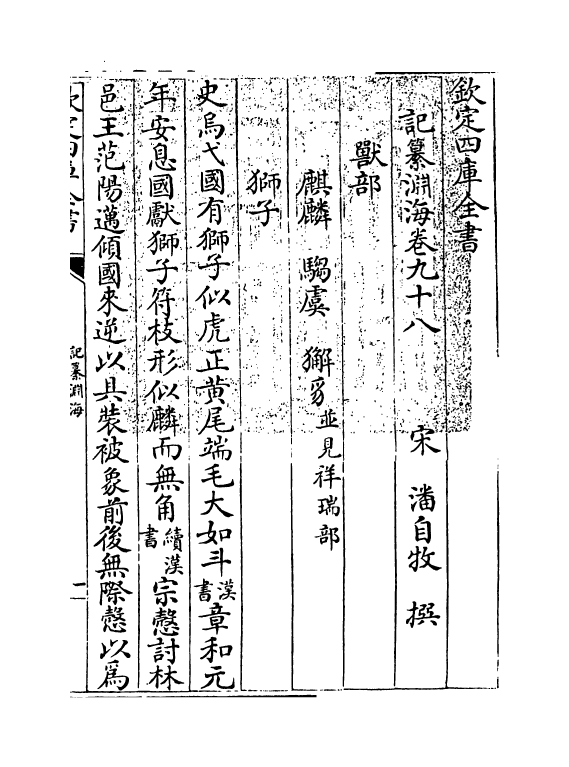 欽定四庫全書
記纂淵海卷九十八 宋 潘自牧 撰
獸部
麒麟 騶虞 獬豸並見祥瑞部
獅子
史烏弋國有獅子似虎正黄尾端毛大如斗漢書章和元
年安息國獻獅子符枝形似麟而無角續漢書宗慤討林
邑王范陽邁傾國來逆以具裝被象前後無際慤以爲
記纂淵海